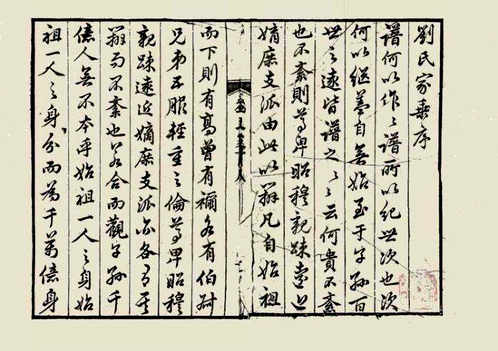 劉氏家乘序
譜何以作譜所以紀世次也次
何以繼蓋自無始至于子孫百
世之遠皆譜之〻云何貴不紊
也不紊則尊卑昭穆親疎
嫡庶支派由此以辯凡自始祖
而下則有高曾有禰各有伯叔
兄弟五服輕重之倫尊卑昭穆
親疎遠近嫡庶支派亦各有
辯而不紊也若合而觀子孫千
億人無不本乎始祖一人之身始
祖一人之身分而為千萬億身